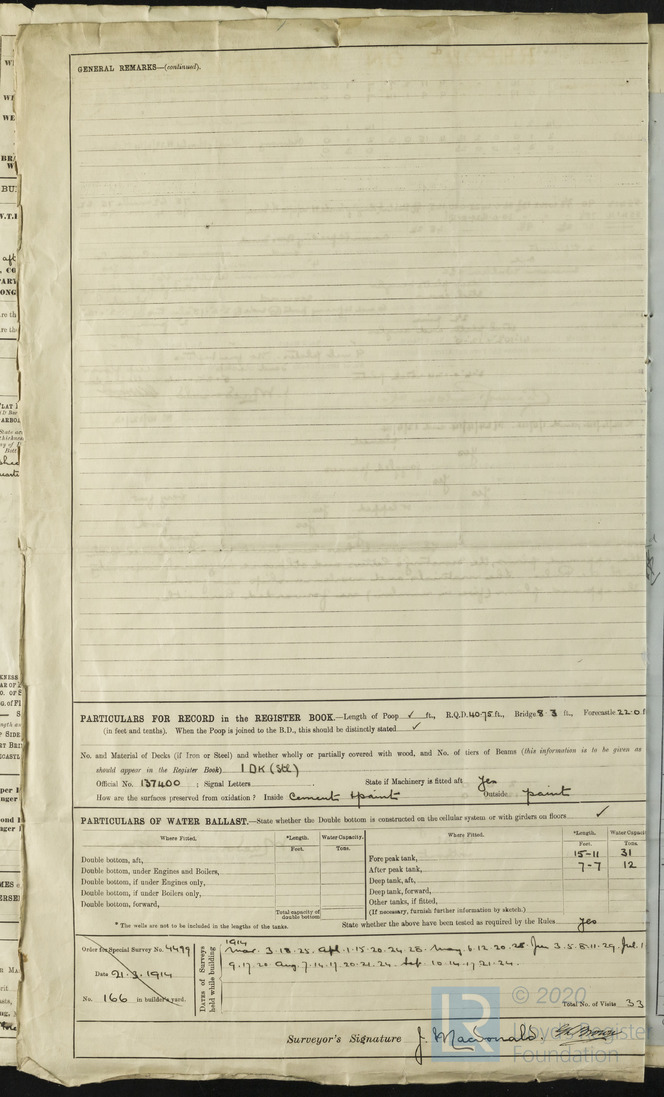 GENERAL REMARKS—(continued).
PARTICULARS FOR RECORD in the REGISTER BOOK.—Length of Poop ✓ ft., R.Q.D. 40.75 ft., Bridge 8.3 ft., Forecastle 22.0 f
(in feet and tenths). When the Poop is joined to the B.D., this should be distinctly stated ✓
No. and Material of Decks (if Iron or Steel) and whether wholly or partially covered with wood, and No. of tiers of Beams (this information is to be given as
should appear in the Register Book) 1 DK (Stl)
Official No. 137400 ; Signal Letters State if Machinery is fitted aft Yes
How are the surfaces preserved from oxidation? Inside Cement & paint Outside paint
PARTICULARS OF WATER BALLAST.—State whether the Double bottom is constructed on the cellular system or with girders on floors ✓
Where Fitted. *Length. Water Capacity. Where Fitted. *Length. Water Capaci
Feet. Tons. Feet. Tons.
Double bottom, aft, Fore peak tank, 15-11 31
Double bottom, under Engines and Boilers, After peak tank, 7-7 12
Double bottom, if under Engines only, Deep tank, aft,
Double bottom, if under Boilers only, Deep tank, forward,
Double bottom, forward, Other tanks, if fitted,
Total capacity of double bottom (If necessary, furnish further information by sketch.)
* The wells are not to be included in the lengths of the tanks. State whether the above have been tested as required by the Rules Yes
Order for Special Survey No. 4479
Date 21.3.1914
No. 166 in builder's yard.
Dates of Surveys held while building
1914
Mar. 3.18.25. Apl. 1.15.20.24.28. May 6.12.20.28. Jun 3.5.8.11.29. Jul. 1
9.17.20 Aug 7.14.17.20.21.24. Sep. 10.14.17.21.24.
Total No. of Visits 33
Surveyor's Signature J. MacDonald.
© 2020
Lloyd's Register
Foundation